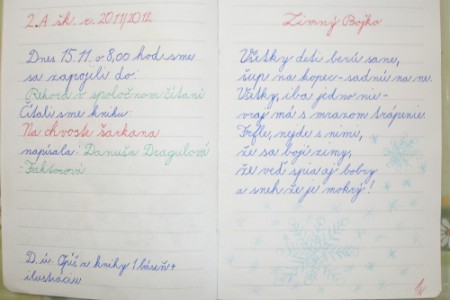 2.A šk. r. 2011/2012
Dnes 15.11. o 8,00 hod. sme
sa zapojili do:
Rekord v spoločnom čítaní
Čítali sme knihu:
Na chvoste šarkana
napísala: Danuša Dragulová-
Faktorová
D. ú. Opíš z knihy 1 báseň +
ilustráciu
Zimný Bojko
Všetky deti berú sane,
šup na kopec - sadnú na ne.
Všetky, iba jedno nie -
vraj má s mrazom trápenie.
Frfle, nejde s nimi,
že sa bojí zimy,
že veď spia aj bobry
a sneh že je mokrý!